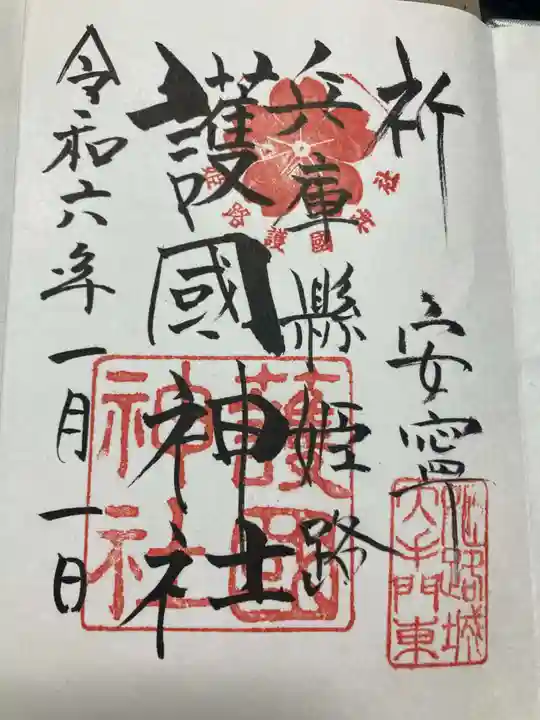 祈
安寧
兵庫縣姫路
護國神社
令和六年一月一日
姫路護國神社
護國神社
姫路城
大手門東